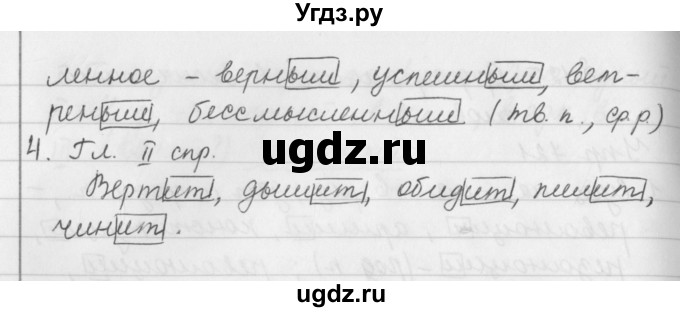 Угдз.ру
ленное - верным, успешным, вет-
реным, бессмысленным (тв. п., ср.р.)
4. Гл. II спр.
Вертит, дышит, обидит, пилит,
чинит.
ugdz.ru
ugdz.ru